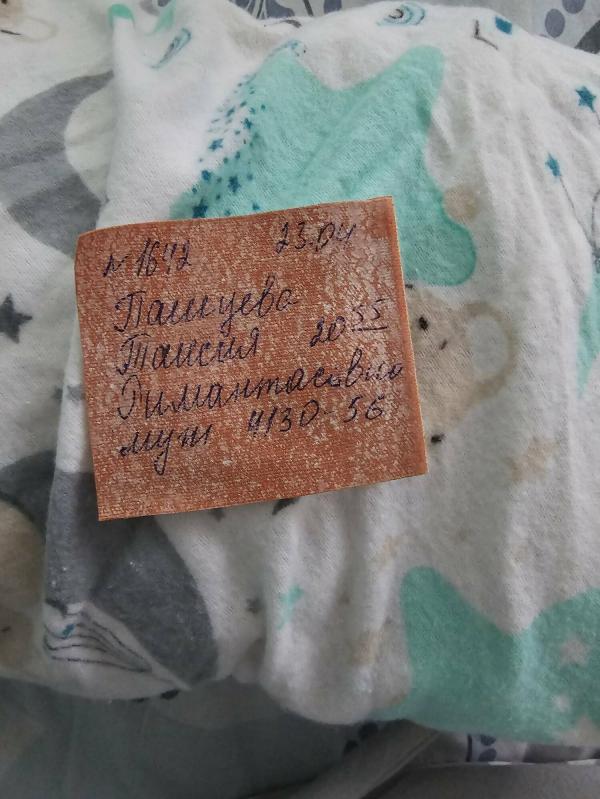 № 1642 23.04
Пашуева
Таисия 20 55
Римантасовна
муж 4130-56